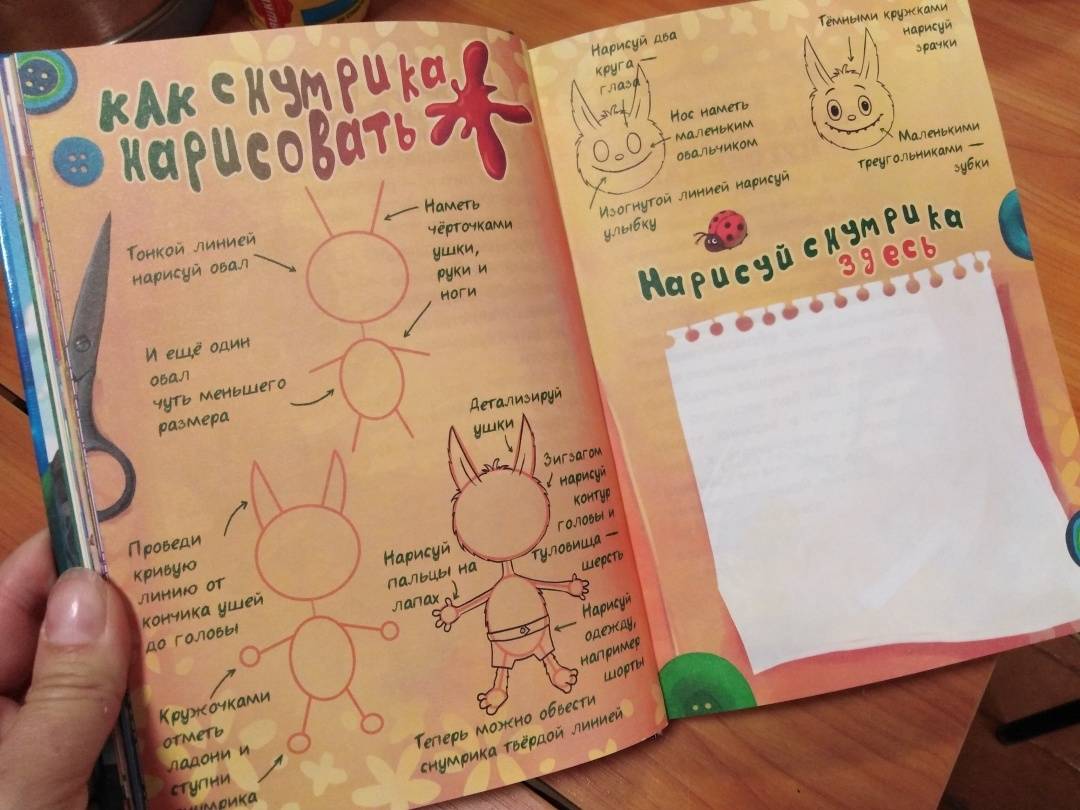 как снумрика
нарисовать
Тонкой линией
нарисуй овал
Наметь
чёрточками
ушки,
руки и
ноги
И ещё один
овал
чуть меньшего
размера
Проведи
кривую
линию от
кончика ушей
до головы
Кружочками
отметь
ладони и
ступни
снумрика
Детализируй
ушки
Зигзагом
нарисуй
контур
головы и
туловища —
шерсть
Нарисуй
пальцы на
лапах
Нарисуй
одежду,
например
шорты
Теперь можно обвести
снумрика твёрдой линией
Нарисуй два
круга —
глаза
Нос наметь
маленьким
овальчиком
Изогнутой линией нарисуй
улыбку
Тёмными кружками
нарисуй
зрачки
Маленькими
треугольниками —
зубки
Нарисуй снумрика
здесь